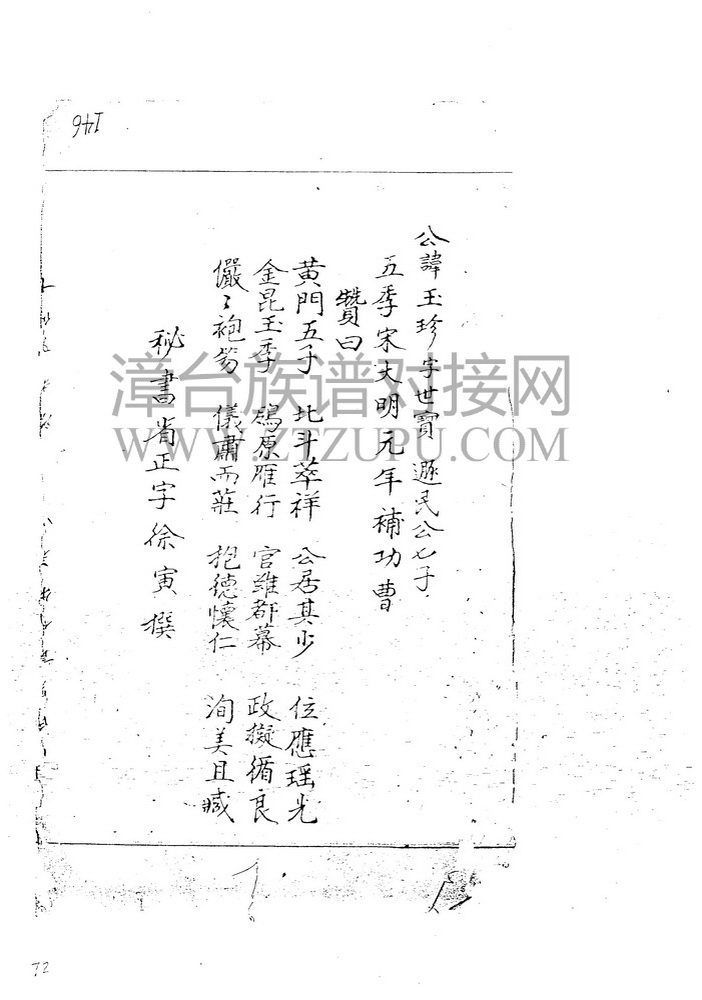 146
公諱玉珍字世寶遯民公七子
五季宋文明元年補功曹
贊曰
黄門五子 北斗萃祥 公居其少 位應瑶光
金昆玉季 鴒原雁行 官維都幕 政擬循良
儼〻袍笏 儀肅而莊 抱德懷仁 洵美且臧
秘書省正字徐寅撰
漳台族谱对接网
WWW.ZTZUPU.COM
72